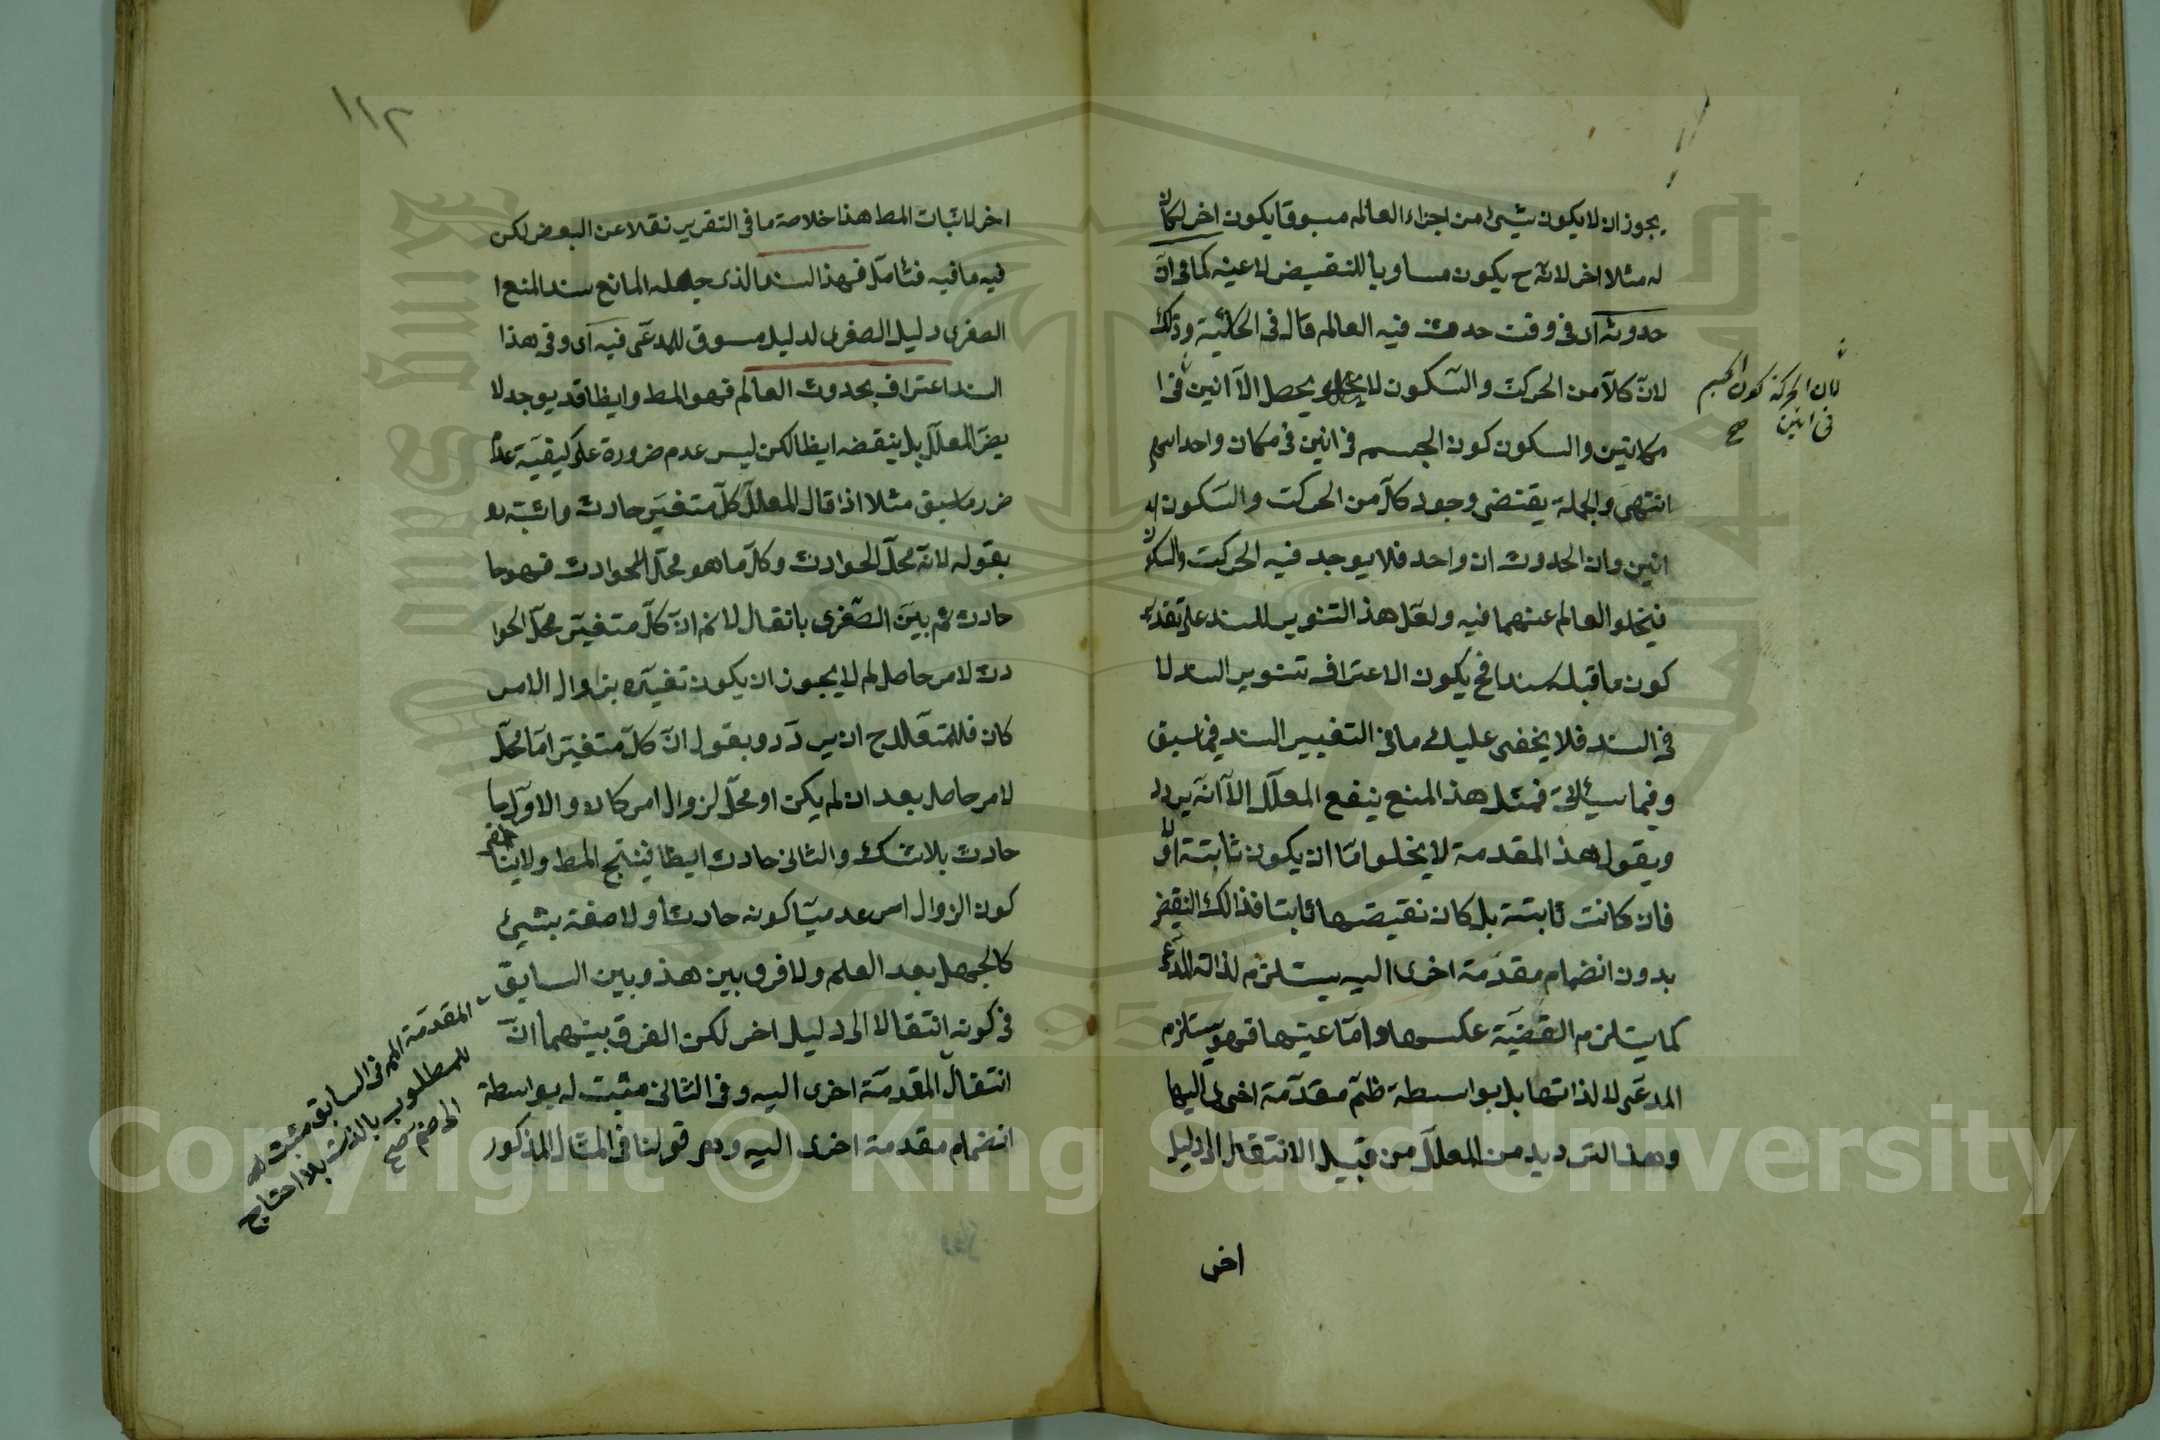 يجوز ان لا يكون شيئ من اجزاء العالم مسبوقا يكون اخر لكان
له مثلا اخر لانه ح يكون مساويا للنقيض لا عينه كما فى ان
حدوثه اى فى وقت حدوث فيه العالم قال فى الحاشية وذلك
لان كلا من الحركت والسكون لا يحصل الا انين فى ا
لان الحركة كون الجسم
فى انين صح
مكانين والسكون كون الجسم فى انين فى مكان واحد
انتهى والجملة يقتضى وجود كل من الحركت والسكون
انين وان الحدوث ان واحد فلا يوجد فيه الحركت والسكون
فيخلو العالم عنهما فيه ولعل هذ التنوير للسند على تقدير
كون ما قبله سندا فح يكون الاعتراف تنوير السند لا
فى السند فلا يخفى عليك ما فى التغيير السند فيما سبق
وفيما سيئاتى فمثل هذ المنع ينفع المعلل الا انه يردد
ويقول هذ المقدمة لا يخلو اما ان يكون ثابتة او لا
فان كانت ثابتة بل كان نقيضها ثابتا فذالك النقيض
بدون انضمام مقدمة اخرى اليه يستلزم لذاته للمدعى
كما يستلزم القضية عكسها واما عينها فهو يستلزم
المدعى لا لذاتها بل بواسطة ظم مقدمة اخرى اليها
وهذ الترديد من المعلل من قبيل الانتقال الى دليل
اخر
١١٢
اخر لاثبات المط هذا خلاصة ما فى التقرير نقلا عن البعض لكن
فيه ما فيه فتامل فهذا السند الذى جعله المانع سند المنع ا
الصغرى دليل الصغرى لدليل مسوق للمدعى فيه اى وفى هذا
السند اعتراف بحدوث العالم فهو المط وايظا قد يوجد لا
يضر المعلل بل ينقضه ايظا لكن ليس عدم ضرورة على كيفية عدم
ضرر ما سبق مثلا اذا قال المعلل كل متغير حادث واثبته
بقوله لانه محل الحوادث وكل ما هو محل للحوادث فهو حا
حادث ثم بين الصغرى بانتقال لا نم ان كل متغير محل الحوا
دث لامر حاصل لم لا يجوز ان يكون تغييره بزاوال الامر
كان فللمعلل ح ان يردد ويقول ان كل متغير اما محل
لامر حاصل بعد ان لم يكن او محل لزوال امر كان والاول حا
حادث بلا شك والثانى حادث ايظا فينتج المط ولا ينافى
كون الزوال امر عدميا كونه حادثا ولا صفة بشيئ
كالجهل بعد العلم ولا فرق بين هذ وبين السابق
فى كونه انتقالا الى دليل اخر لكن الفرق بينهما ان
انتقال المقدمة اخرى اليه وفى الثانى مثبت له بواسطة
انضمام مقدمة اخرى اليه وهو قولنا فى المثال المذكور
المقدمة المم فى السابق مثبت له
للمطلوب بالذات بلا احتياج
الى ضم صح
Copyright © King Saud University
1957